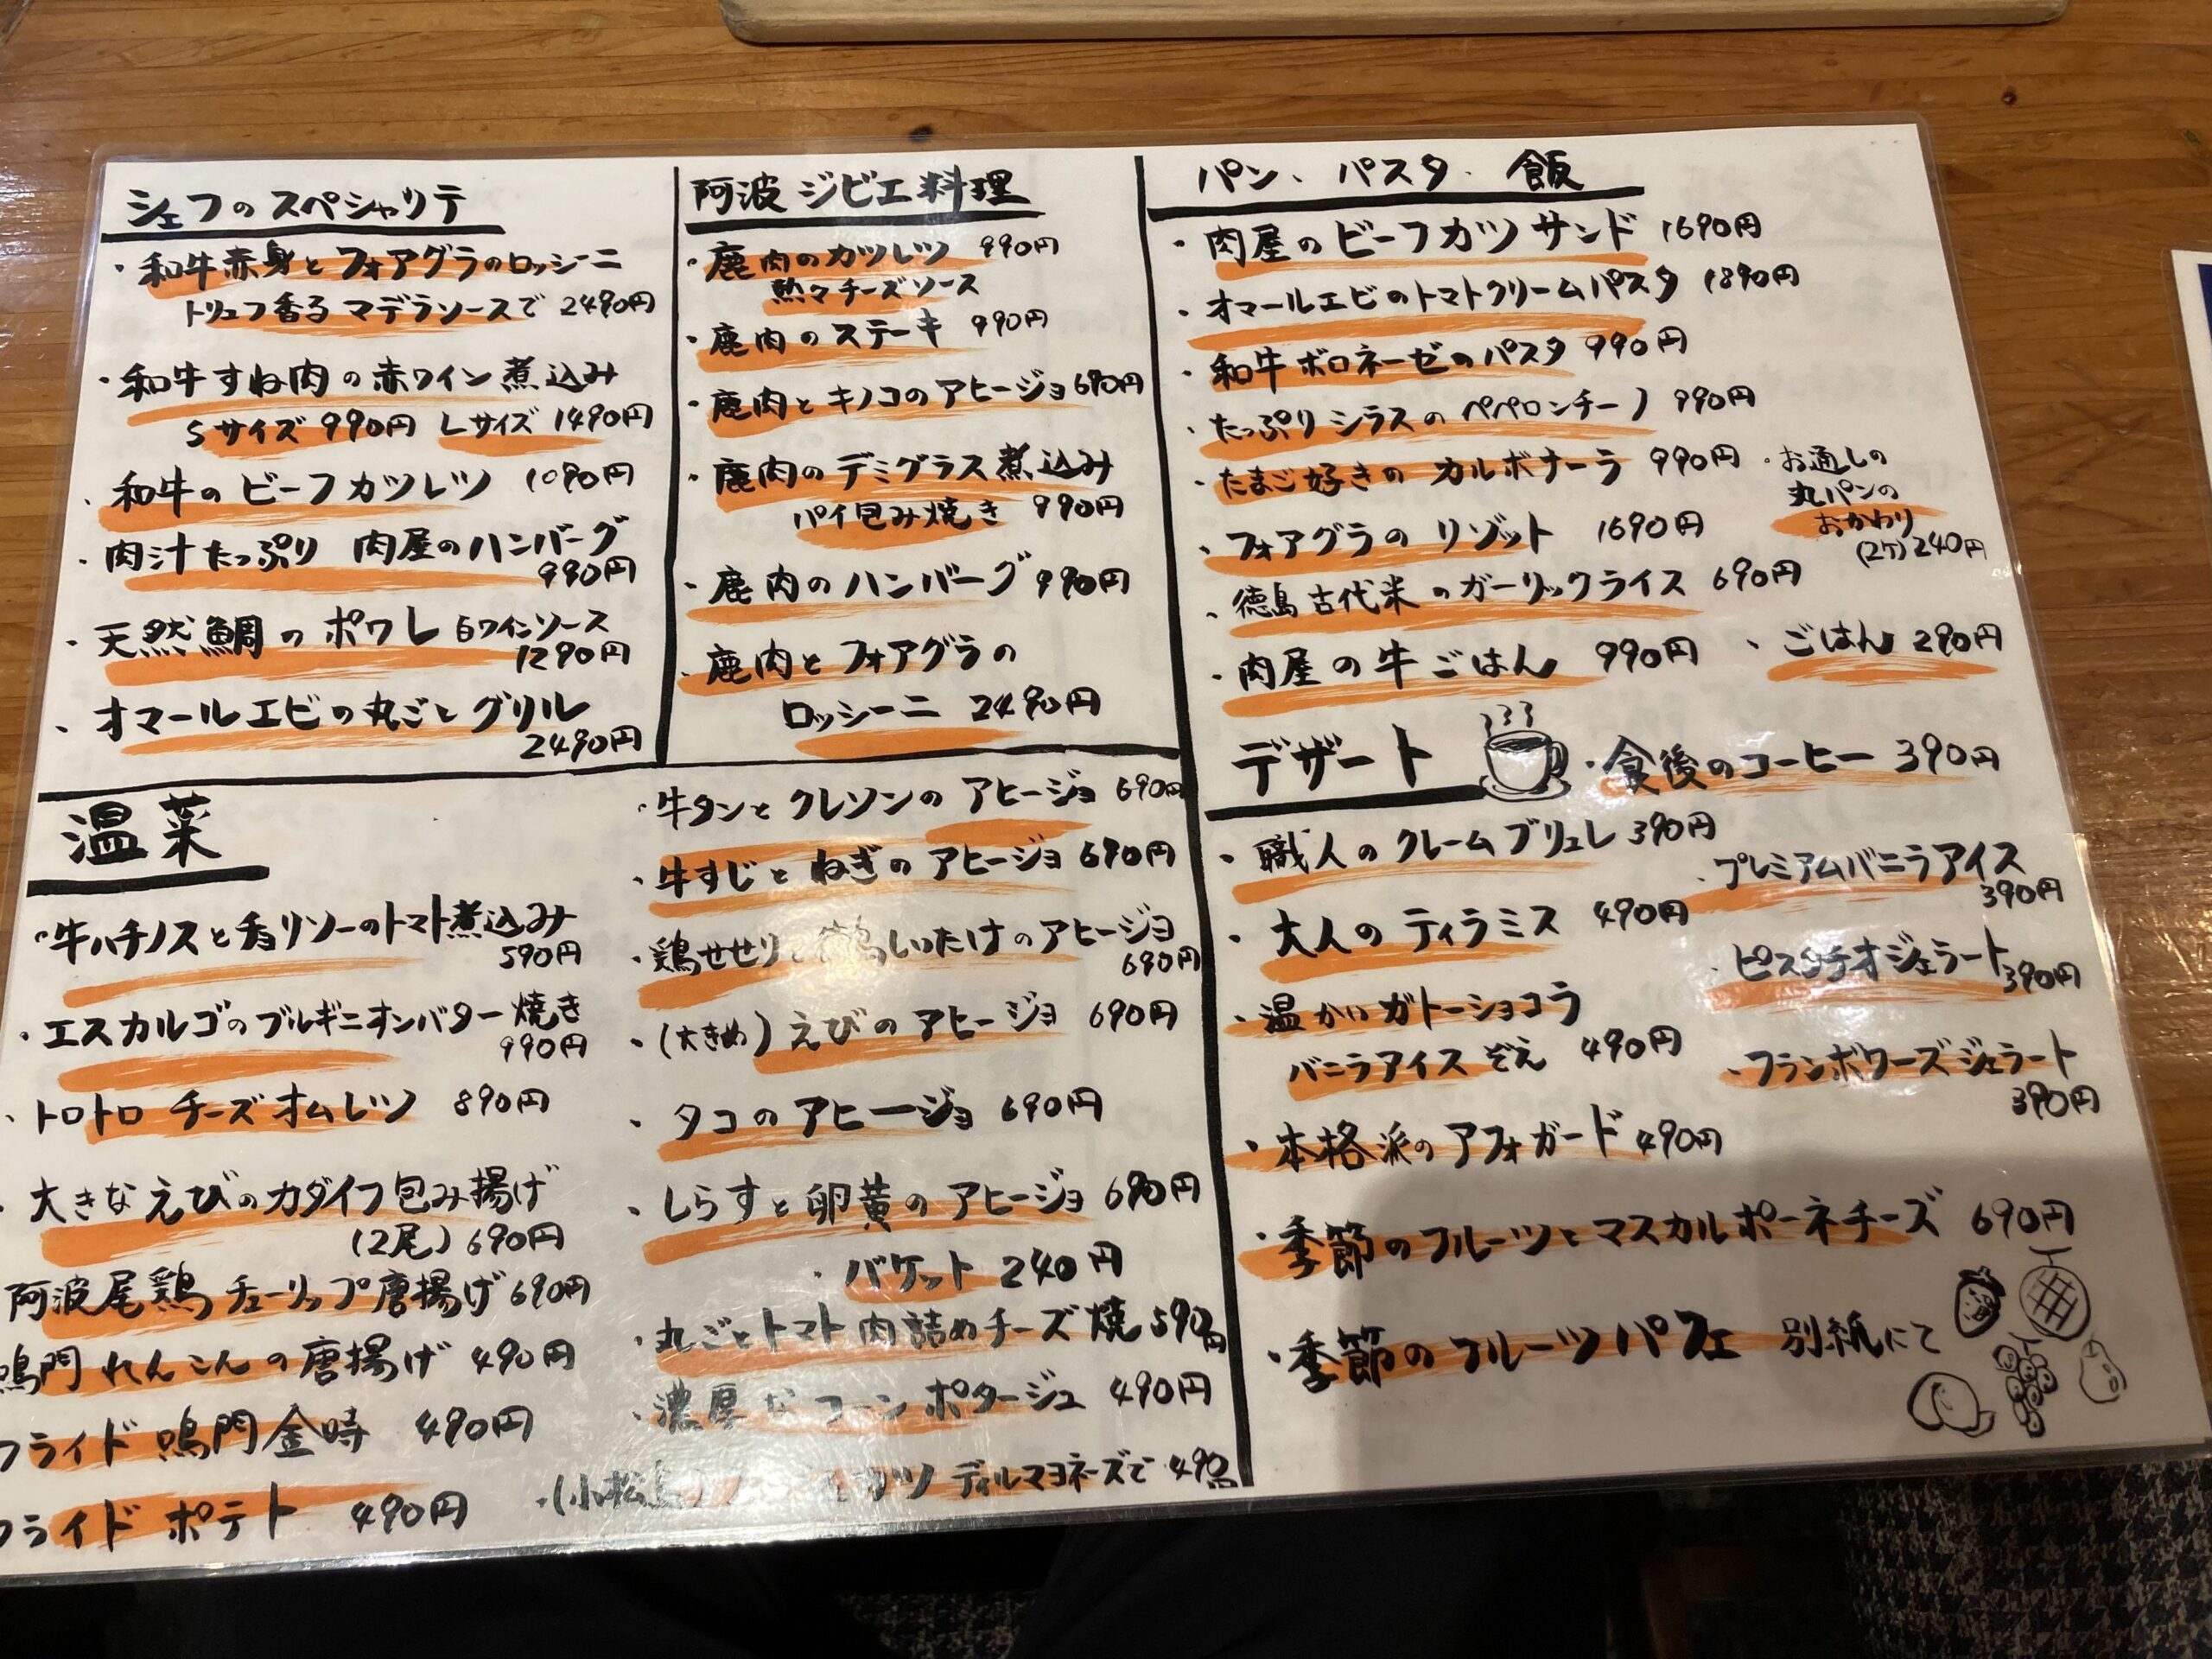 シェフのスペシャリテ
・和牛赤身とフォアグラのロッシーニ
トリュフ香る マデラソースで 2490円
・和牛すね肉の赤ワイン煮込み
Sサイズ 990円 Lサイズ 1490円
・和牛のビーフカツレツ 1090円
・肉汁たっぷり 肉屋のハンバーグ
990円
・天然鯛のポワレ 白ワインソース
1290円
・オマールエビの丸ごとグリル
2490円
阿波ジビエ料理
・鹿肉のカツレツ 990円
熱々チーズソース
・鹿肉のステーキ 990円
・鹿肉とキノコのアヒージョ 690円
・鹿肉のデミグラス煮込み
パイ包み焼き 990円
・鹿肉のハンバーグ 990円
・鹿肉とフォアグラの
ロッシーニ 2490円
パン、パスタ、飯
・肉屋のビーフカツサンド 1690円
・オマールエビのトマトクリームパスタ 1890円
・和牛ボロネーゼのパスタ 990円
・たっぷりシラスのペペロンチーノ 990円
・たまご好きのカルボナーラ 990円
・お通しの
丸パンの
おかわり
(2ケ) 240円
・フォアグラのリゾット 1690円
・徳島古代米のガーリックライス 690円
・肉屋の牛ごはん 990円
・ごはん 290円
デザート
・食後のコーヒー 390円
・職人のクレームブリュレ 390円
・大人のティラミス 490円
・温かいガトーショコラ
バニラアイスぞえ 490円
・本格派のアフォガード 490円
・プレミアムバニラアイス
390円
・ピスタチオジェラート
390円
・フランボワーズジェラート
390円
・季節のフルーツとマスカルポーネチーズ 690円
・季節のフルーツパフェ 別紙にて
温菜
・牛ハチノスとチョリソーのトマト煮込み
590円
・エスカルゴのブルギニオンバター焼き
990円
・トロトロ チーズオムレツ 890円
・大きなえびのカダイフ包み揚げ
(2尾) 690円
阿波尾鶏チューリップ唐揚げ 690円
鳴門れんこんの唐揚げ 490円
フライド鳴門金時 490円
フライドポテト 490円
・牛タンとクレソンのアヒージョ 690円
・牛すじとねぎのアヒージョ 690円
・鶏せせりと徳島しいたけのアヒージョ
690円
・(大きめ)えびのアヒージョ 690円
・タコのアヒージョ 690円
・しらすと卵黄のアヒージョ 690円
・バケット 240円
・丸ごとトマト肉詰めチーズ焼 590円
・濃厚なコーンポタージュ 490円
・(小松島) カツ ディルマヨネーズで 490円